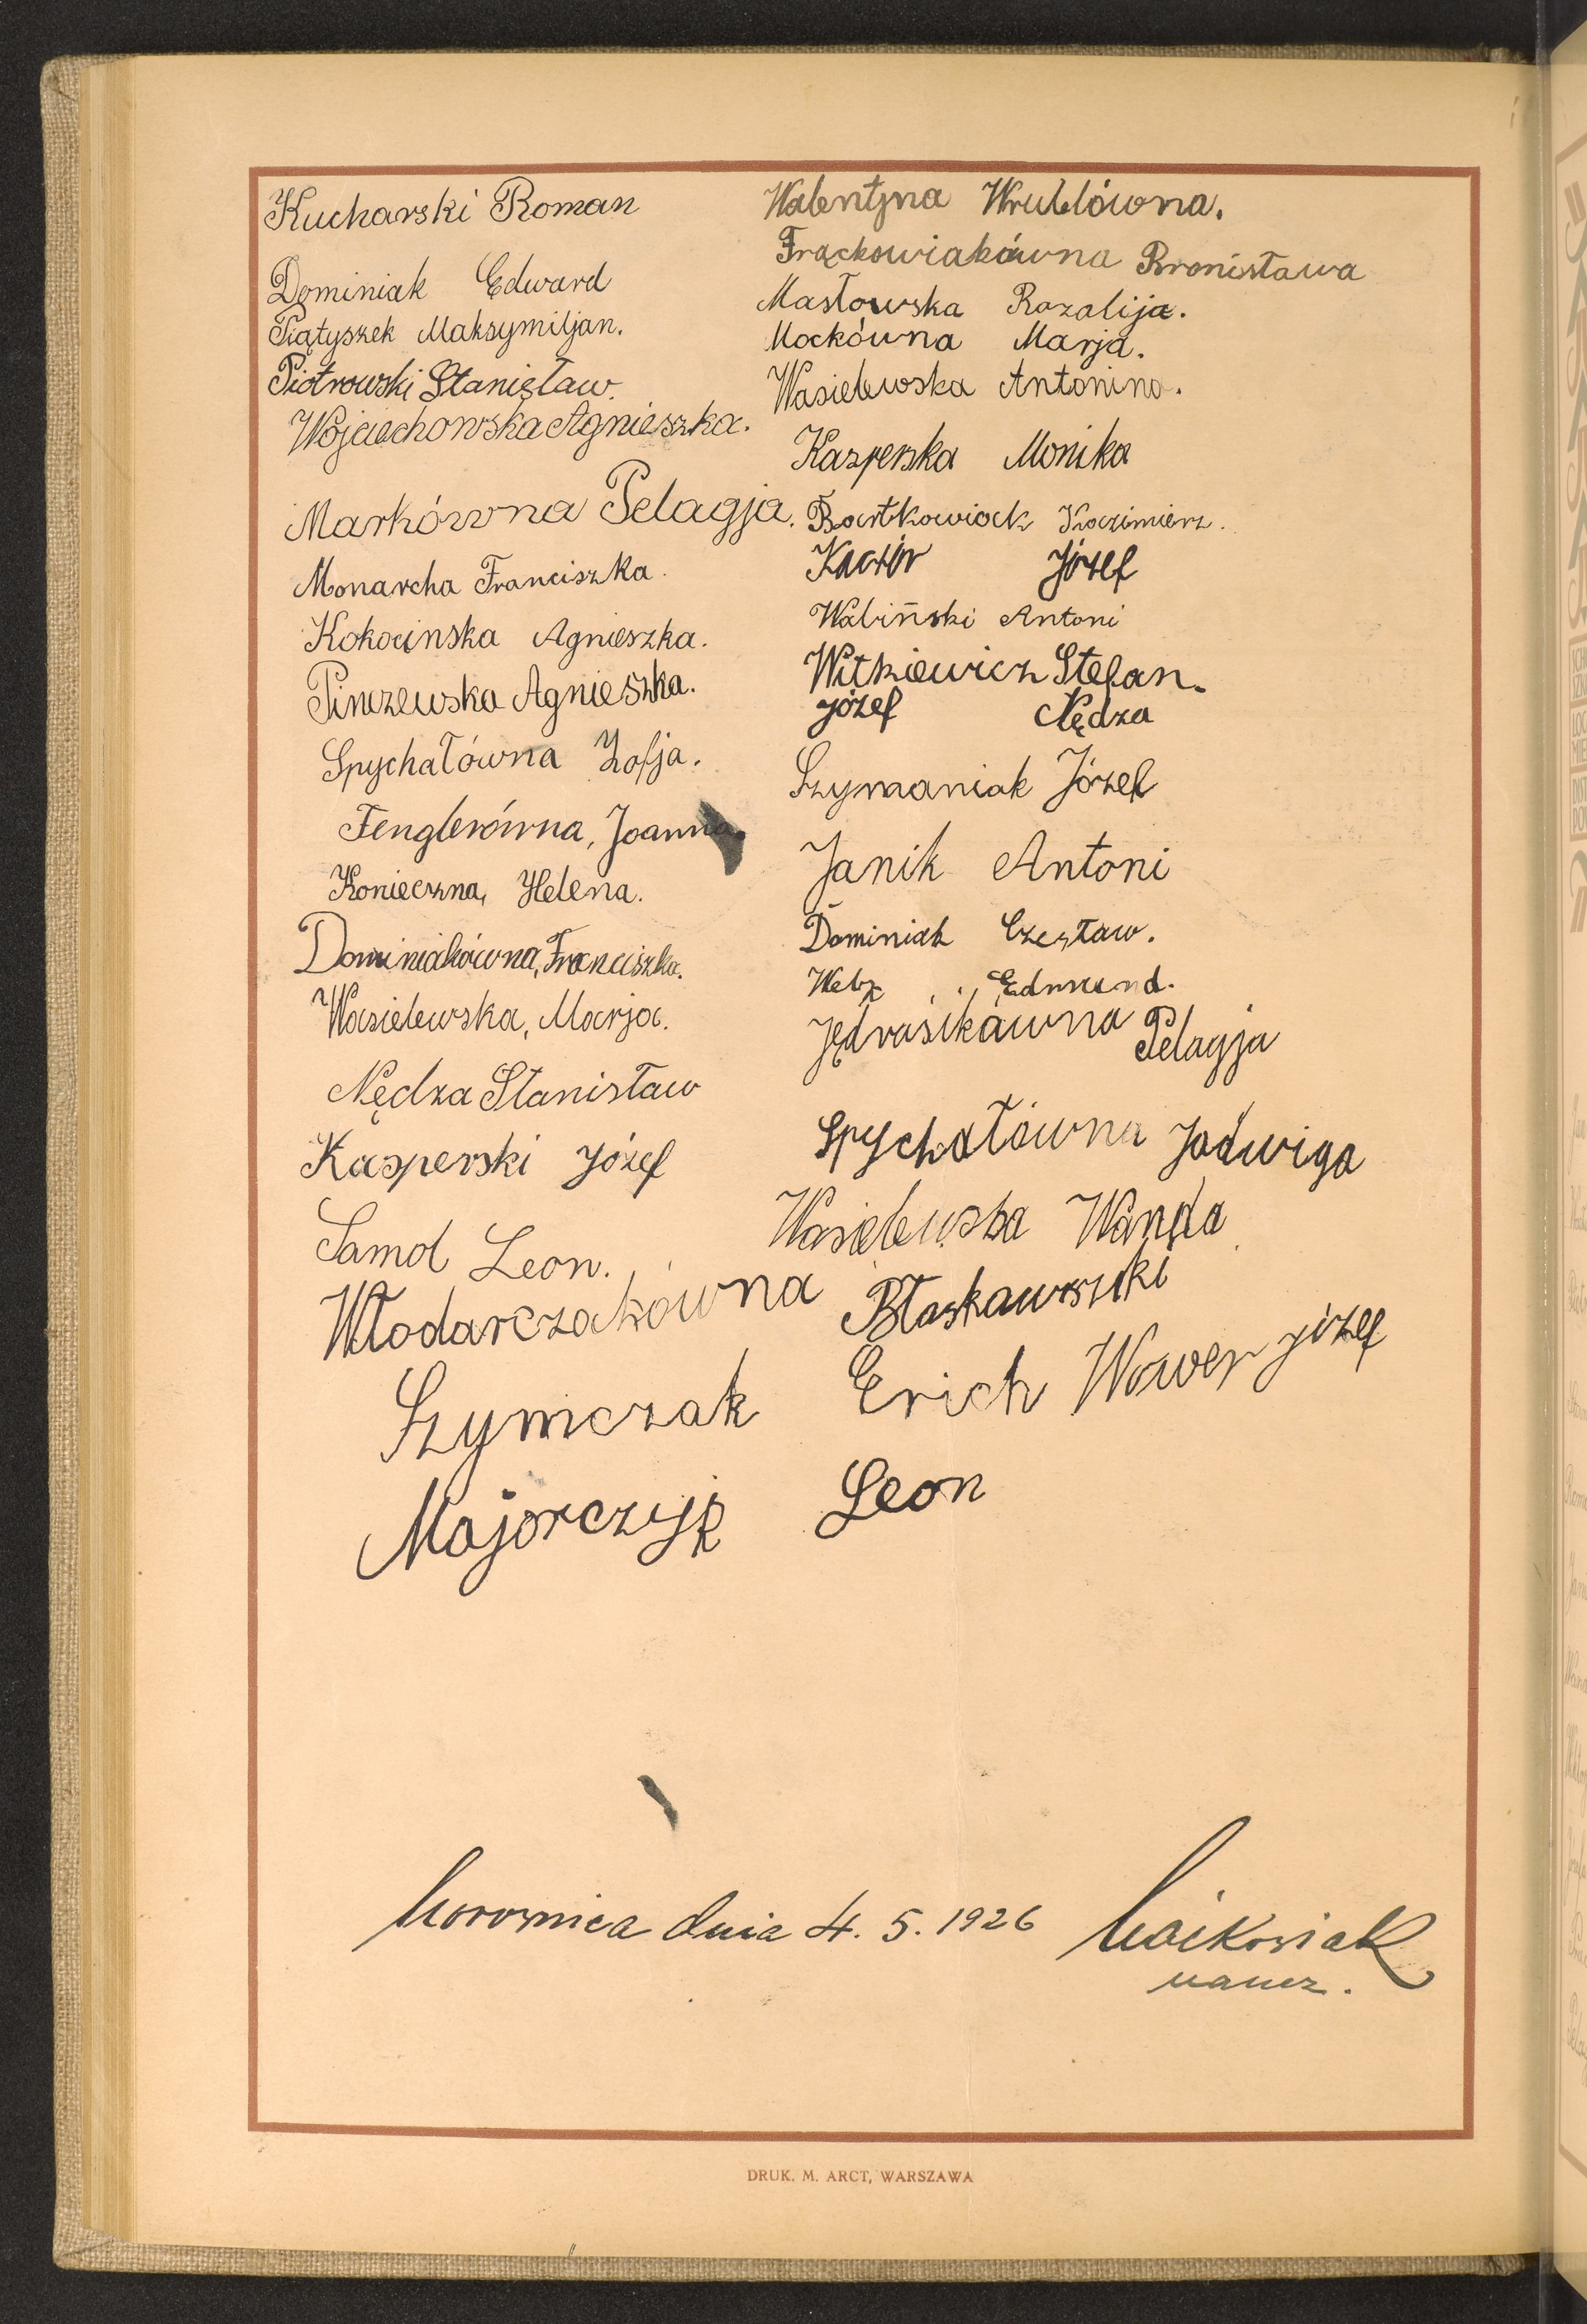 Kucharski Roman
Dominiak Edward
Piątyszek Maksymiljan.
Piotrowski Stanisław.
Wojciechowska Agnieszka.
Markówna Pelagja.
Monarcha Franciszka.
Kokocinska Agnieszka.
Pinczewska Agnieszka.
Spychałówna Zofja.
Fenglerówna, Joanna.
Konieczna, Helena.
Dominiakówna, Franciszka.
Wasielewska, Marja.
Nędza Stanisław
Kasperski Józef
Samol Leon.
Włodarczakówna
Szymczak
Majorczyk Leon
Walentyna Wrublówna.
Frąckowiakówna Bronisława
Masłowska Rozalija.
Mockówna Marja.
Wasielewska Antonina.
Kasperska Monika
Bartkowiack Kazimierz.
Kaczór Józef
Waliński Antoni
Witkiewicz Stefan.
Józef Nędza
Szymaniak Józef
Janik Antoni
Dominiak Czesław.
Edmund.
Jędrasikówna Pelagja
Spychałówna Jadwiga
Wasielewska Wanda
Erich Wower józef
dnia 4. 5. 1926
naucz.
DRUK. M. ARCT, WARSZAWA